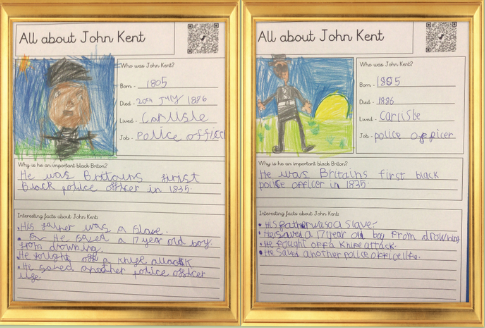 All about John Kent
Who was John Kent?
Born - 1805
Died - 20th July 1886
Lived - Carlisle
Job - Police officer
Why is he an important black Britain?
He was Britains first
Black police officer in 1835
Interesting facts about John Kent:
• His father was a slave
• He saved a 17 year old boy
from drowning
He fought off a knife attack
• He saved another police officer
life.
All about John Kent
Who was John Kent?
Born - 1805
Died - 1886
Lived - Carlisle
Job - police officer
Why is he an important black Britain?
He was Britains first black
police officer in 1835
Interesting facts about John Kent:
• His father was a slaver
• He saved a 17 year old boy from drowning
• He fought off a knife attack.
• He saved another police officer life.